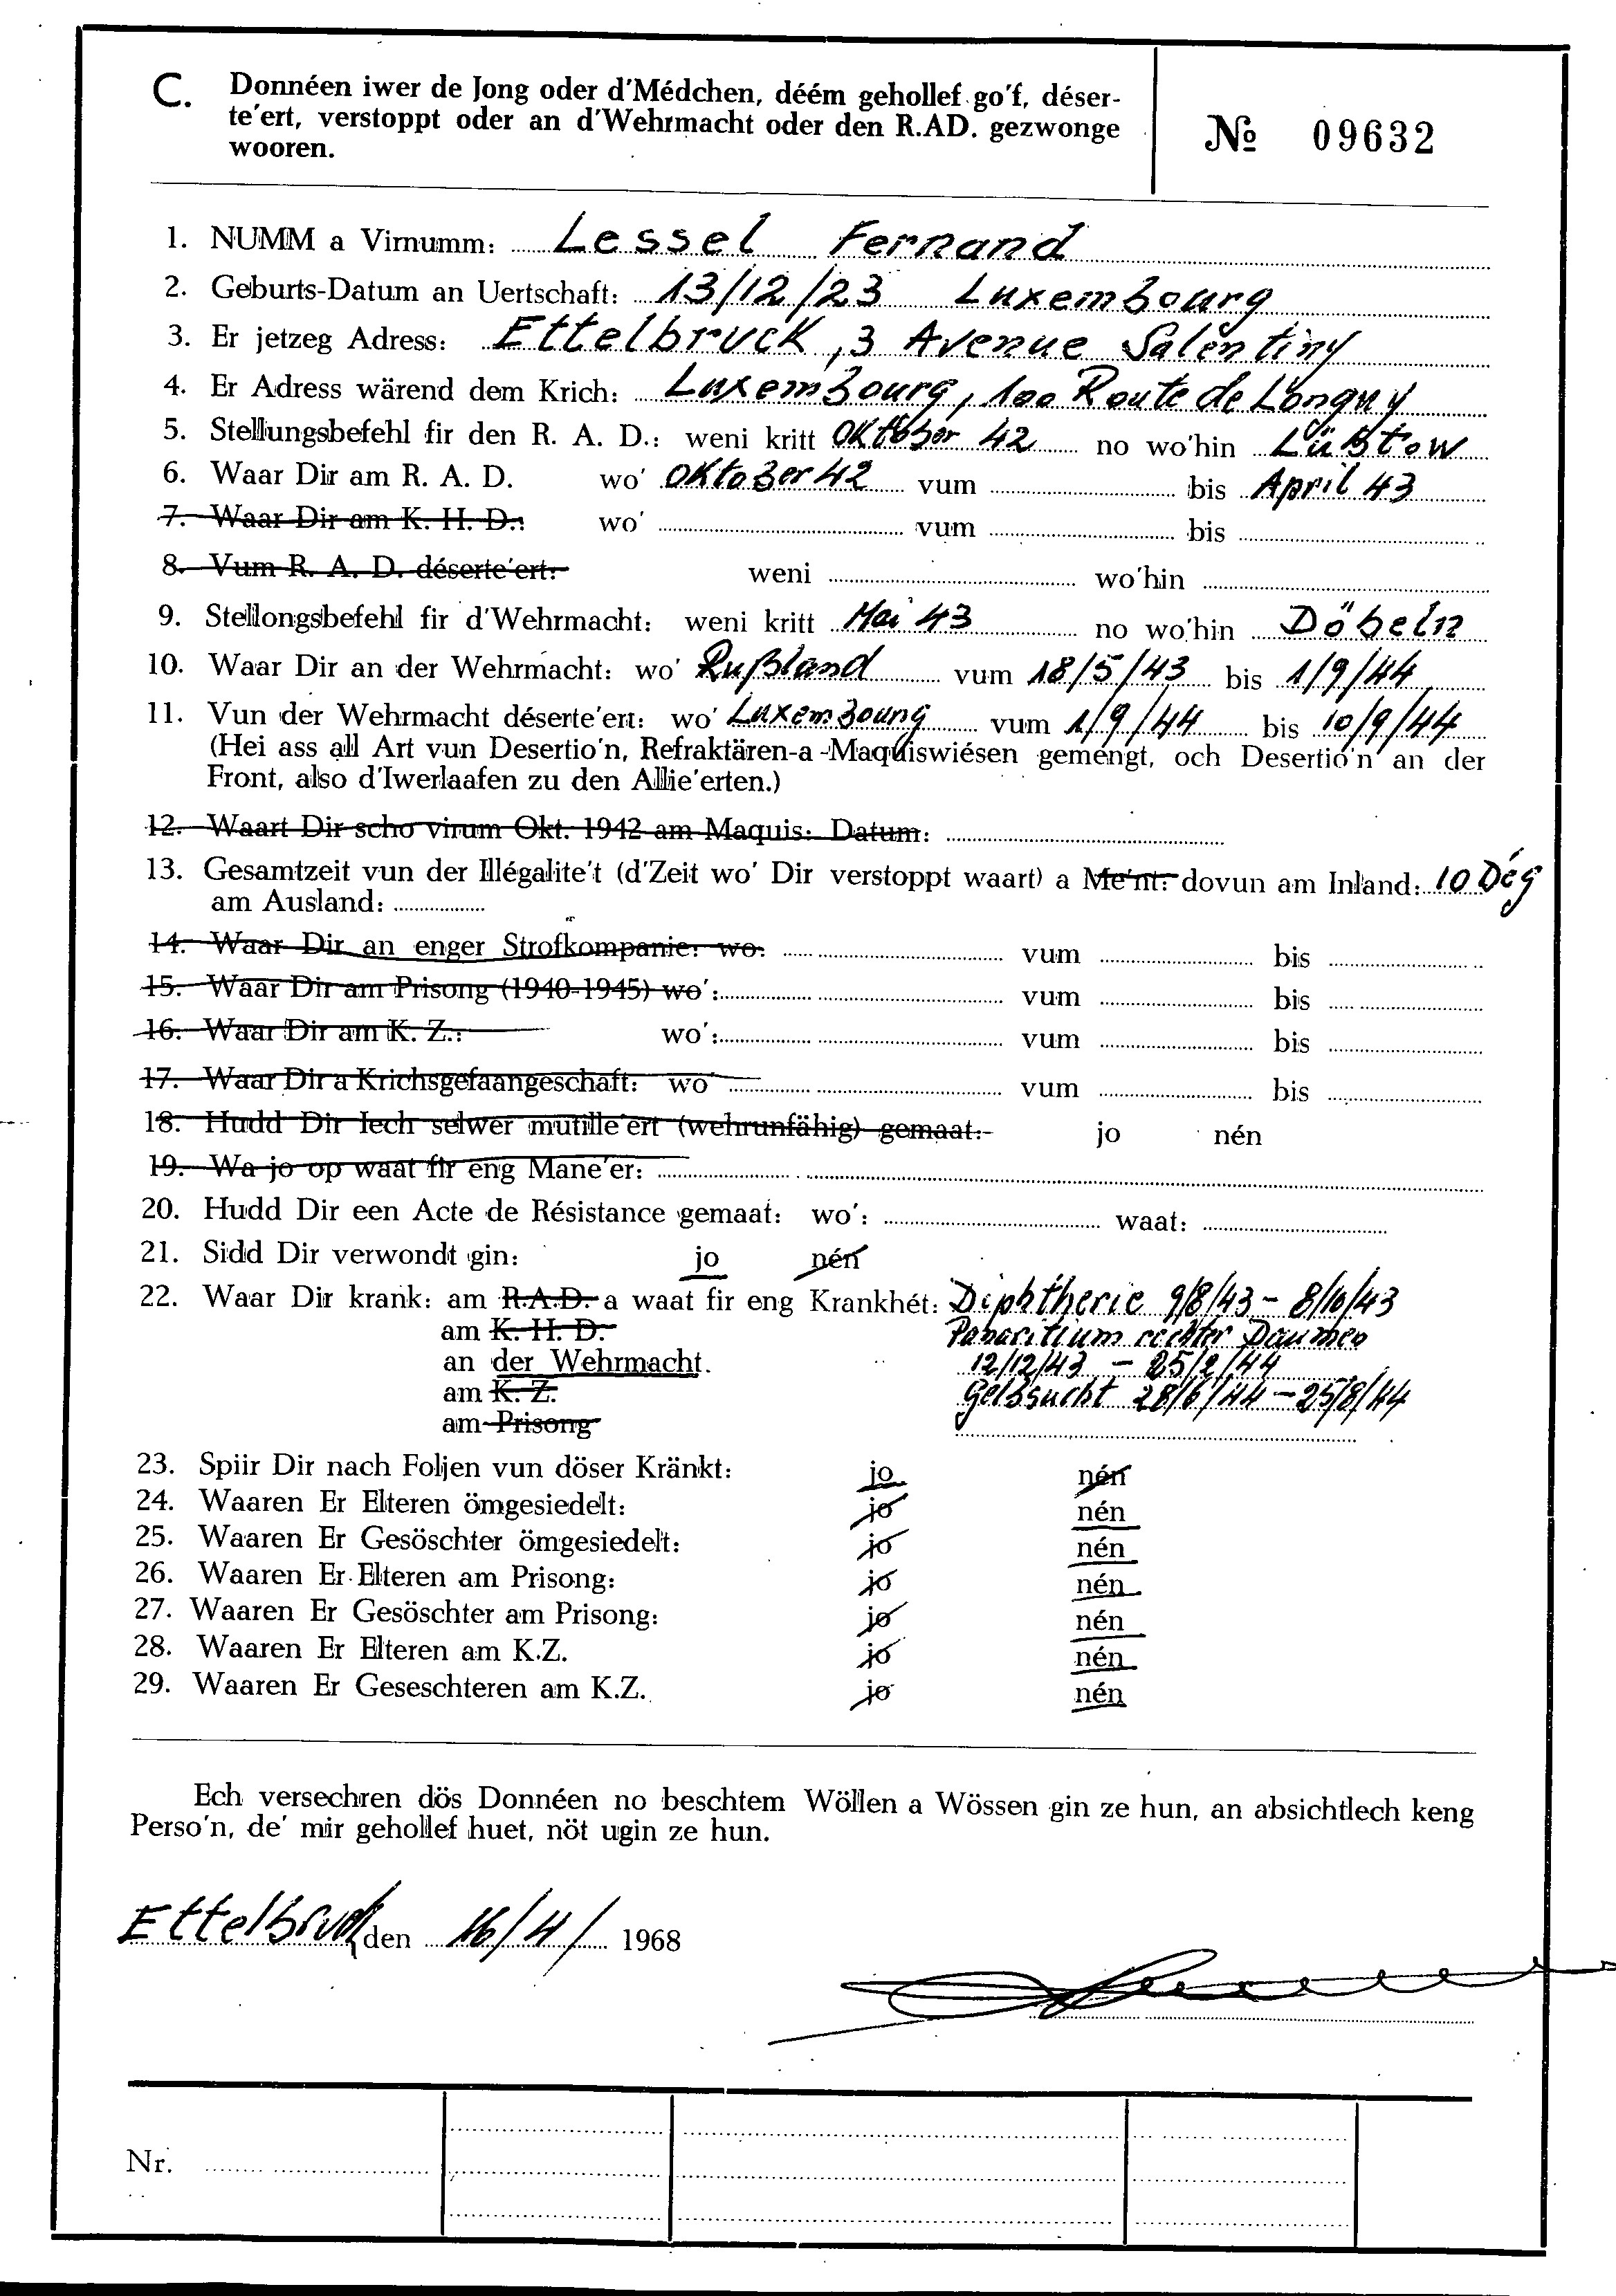 C. Donnéen iwer de Jong oder d'Médchen, déém gehollef go'f, déser-
te'ert, verstoppt oder an d'Wehrmacht oder den R.AD. gezwonge
wooren.
№ 09632
1. NUMM a Virnumm: Lessel Fernand
2. Geburts-Datum an Uertschaft: 13/12/23 Luxembourg
3. Er jetzeg Adress: Ettelbruck, 3 Avenue Salentiny
4. Er Adress wärend dem Krich: Luxembourg, 100 Route de Longwy
5. Stellungsbefehl fir den R. A. D.: weni kritt Oktober 42 no wo'hin Lüßtow
6. Waar Dir am R. A. D. wo' Oktober 42 vum bis April 43
7. Waar Dir am K. H. D.: wo' vum bis
8. Vum R. A. D. déserte'ert: weni wo'hin
9. Stellongsbefehl fir d'Wehrmacht: weni kritt Mai 43 no wo'hin Döbeln
10. Waar Dir an der Wehrmacht: wo' Rußland vum 18/5/43 bis 1/9/44
11. Vun der Wehrmacht déserte'ert: wo' Luxembourg vum 1/9/44 bis 10/9/44
(Hei ass all Art vun Desertio'n, Refraktären-a-Maquiswiésen gemengt, och Desertio'n an der
Front, also d'Iwerlaafen zu den Allie'erten.)
12. Waart Dir scho virum Okt. 1942 am Maquis: Datum:
13. Gesamtzeit vun der Illégalite't (d'Zeit wo' Dir verstoppt waart) a Me'nt: dovun am Inland: 10 Dég
am Ausland:
14. Waar Dir an enger Strofkompanie: wo: vum bis
15. Waar Dir am Prisong (1940-1945) wo': vum bis
16. Waar Dir am K. Z.: wo': vum bis
17. Waar Dir a Krichsgefaangeschaft: wo' vum bis
18. Hudd Dir Iech selwer mutille'ert (wehrunfähig) gemaat: jo nén
19. Wa jo op waat fir eng Mane'er:
20. Hudd Dir een Acte de Résistance gemaat: wo': waat:
21. Sidd Dir verwondt gin: jo nén
22. Waar Dir krank: am R.A.D. a waat fir eng Krankhét: Diphtherie 9/8/43 - 8/10/43
am K. H. D. Panaritium rechter Daumen
an der Wehrmacht. 12/12/43 - 25/2/44
am K. Z. Gelbsucht 28/6/44 - 25/8/44
am Prisong
23. Spiir Dir nach Foljen vun döser Kränkt: jo nén
24. Waaren Er Elteren ömgesiedelt: jo nén
25. Waaren Er Gesöschter ömgesiedelt: jo nén
26. Waaren Er Elteren am Prisong: jo nén
27. Waaren Er Gesöschter am Prisong: jo nén
28. Waaren Er Elteren am K.Z. jo nén
29. Waaren Er Geseschteren am K.Z. jo nén
Ech versechren dös Donnéen no beschtem Wöllen a Wössen gin ze hun, an absichtlech keng
Perso'n, de' mir gehollef huet, nöt ugin ze hun.
Ettelbruck den 16/4/ 1968
Nr.